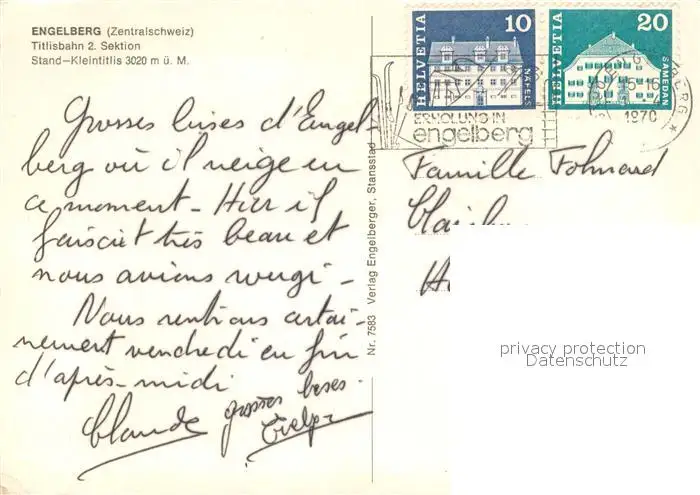 ENGELBERG (Zentralschweiz)
Titlisbahn 2. Sektion
Stand–Kleintitlis 3020 m ü. M.
HELVETIA 10 NÄFELS
HELVETIA 20 SAMEDAN
ERHOLUNG IN
engelberg
1970
Grosses bises d'Engel-
berg où il neige en
ce moment - Hier il
faisait très beau et
nous avions
Nous rentrons certai-
nement vendredi en fin
d'après-midi
grosses bises.
Claude
Famille
Nr. 7583 Verlag Engelberger, Stansstad
privacy protection
Datenschutz